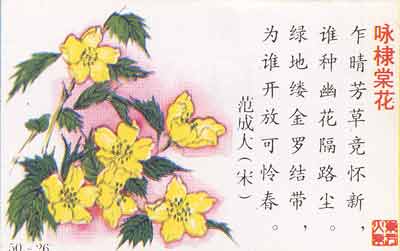 咏棣棠花
乍晴芳草竞怀新，
谁种幽花隔路尘。
绿地缕金罗结带，
为谁开放可怜春。
范成大（宋）
50-26